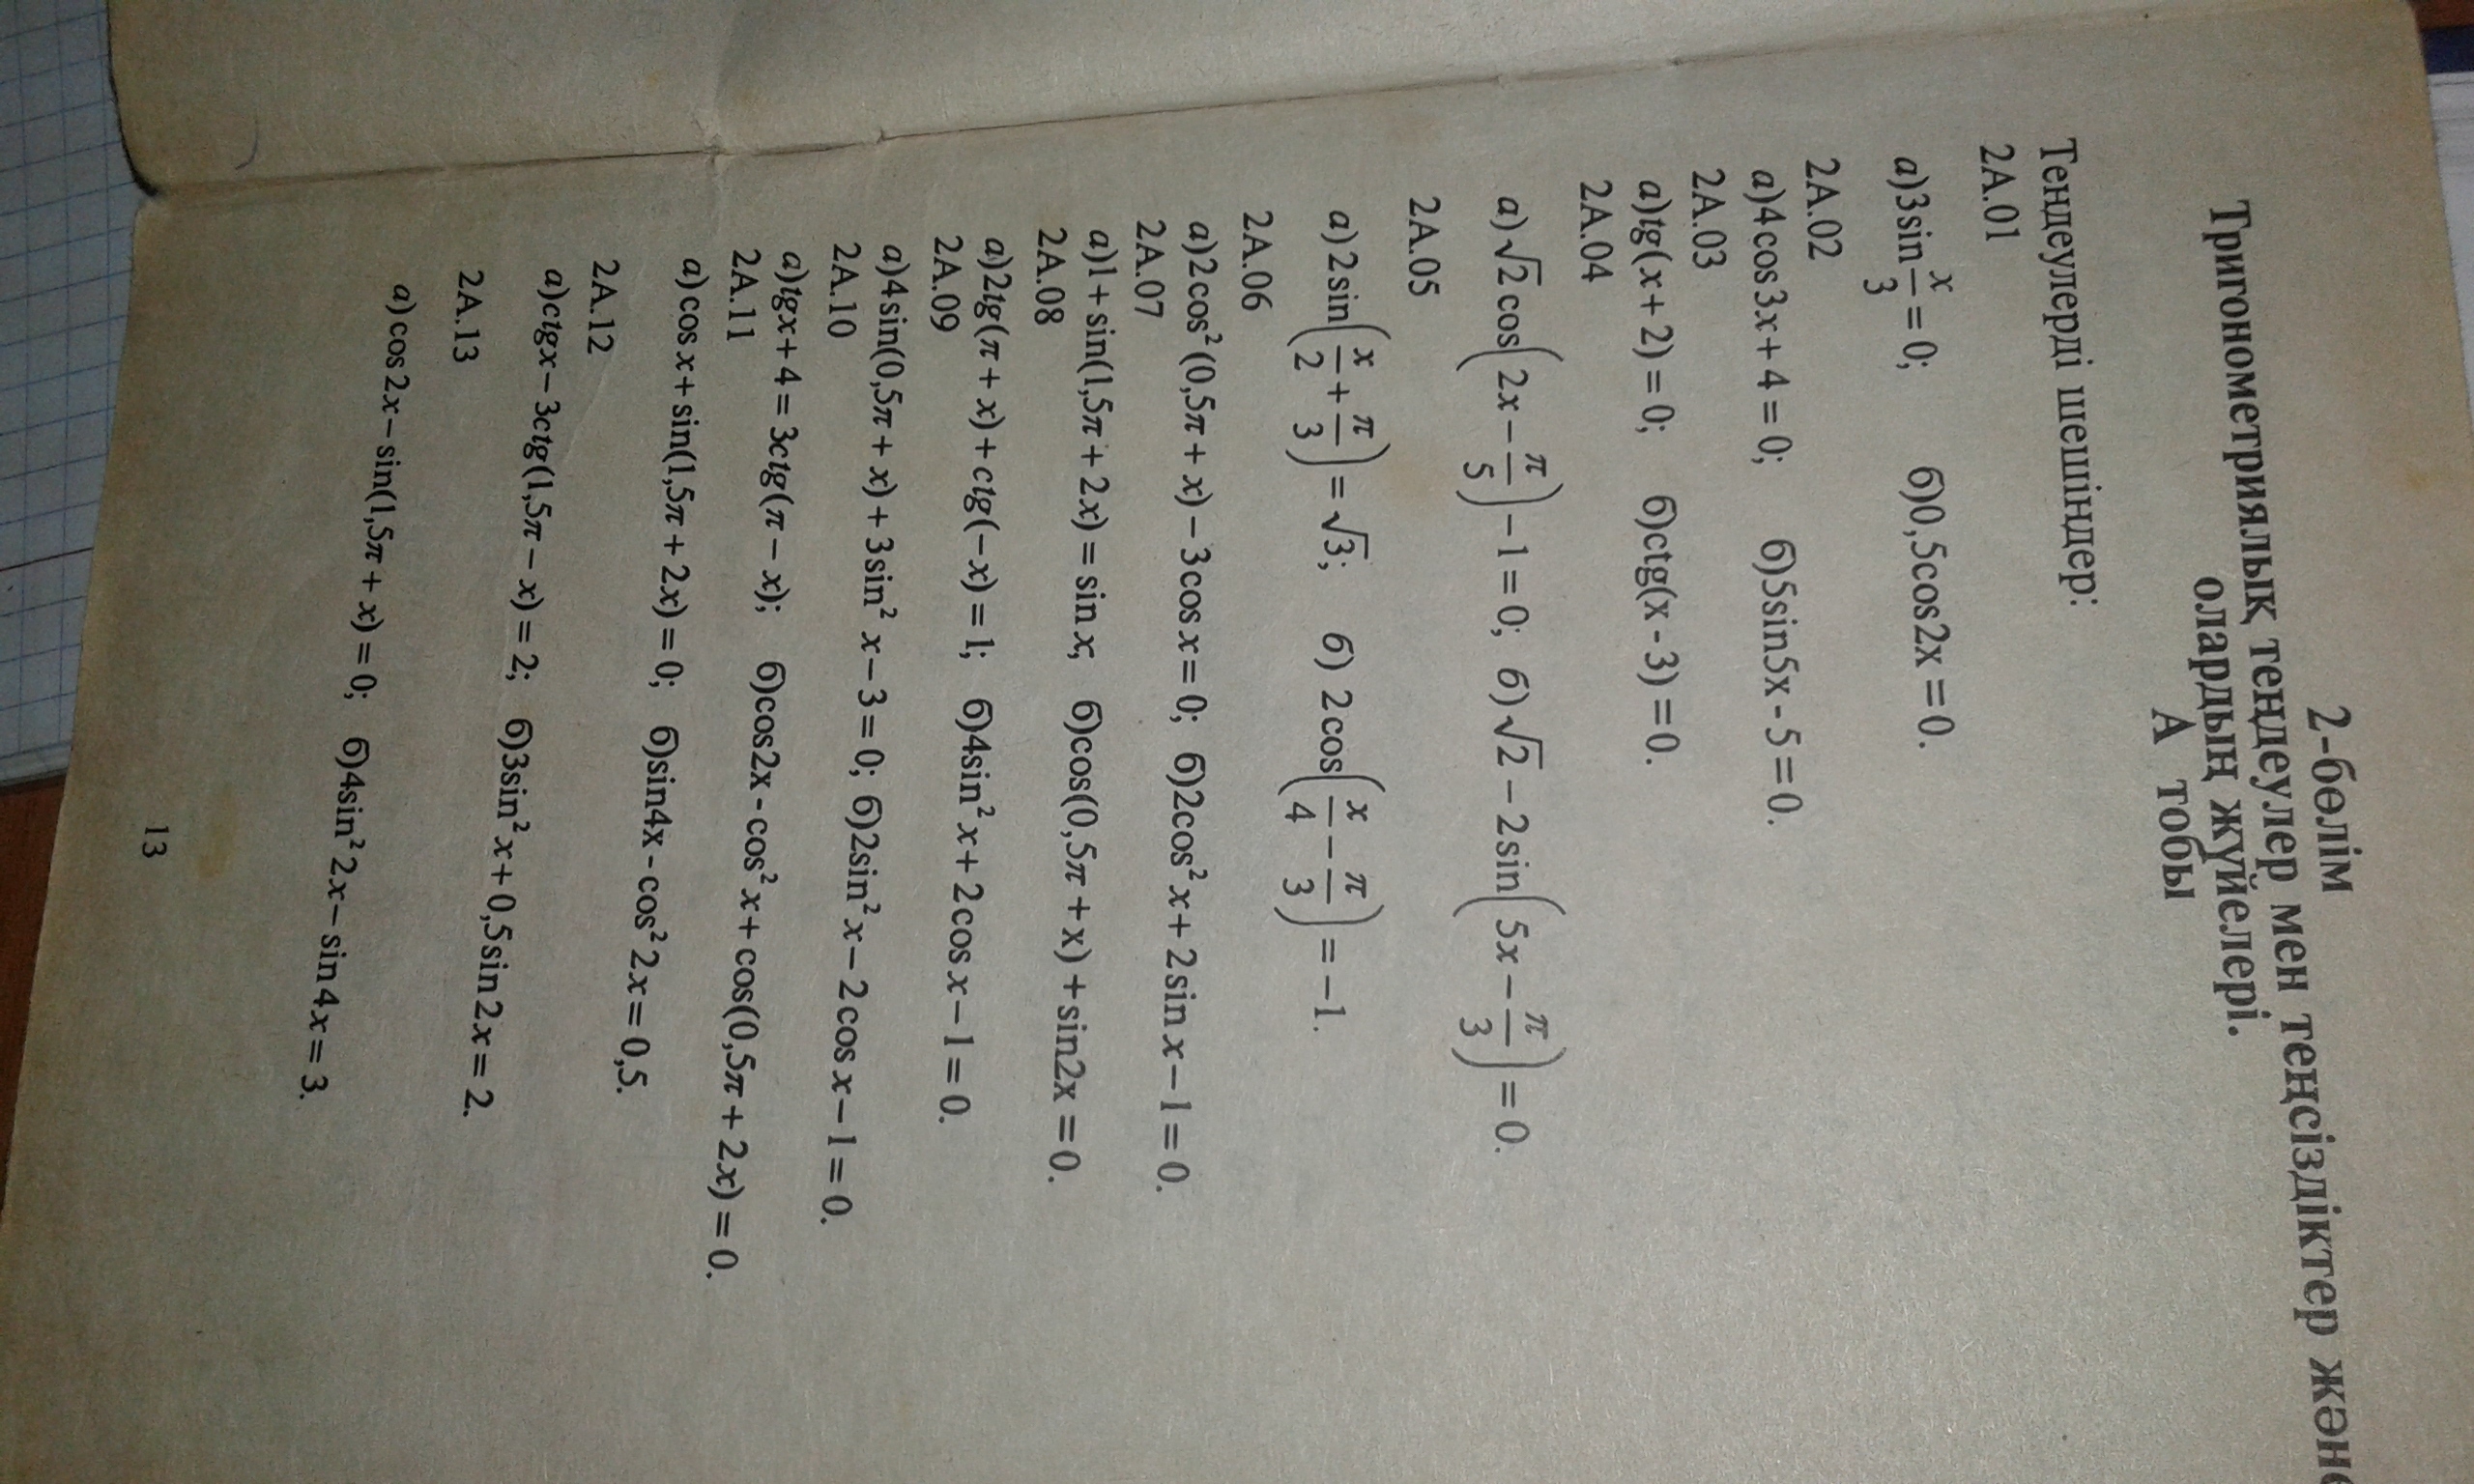 2-бөлім
Тригонометриялық теңдеулер мен теңсіздіктер және
олардың жүйелері.
А тобы
Теңдеулерді шешіңдер:
2А.01
а)3sin x/3 = 0; б)0,5cos2x = 0.
2А.02
а)4cos3x + 4 = 0; б)5sin5x - 5 = 0.
2А.03
а)tg(x + 2) = 0; б)ctg(x - 3) = 0.
2А.04
а)√2 cos(2x − π/5) − 1 = 0; б)√2 − 2sin(5x − π/3) = 0.
2А.05
а) 2sin(x/2 + π/3) = √3; б) 2cos(x/4 − π/3) = −1.
2А.06
а)2cos²(0,5π + x) − 3cos x = 0; б)2cos²x + 2sin x − 1 = 0.
2А.07
а)1 + sin(1,5π + 2x) = sin x; б)cos(0,5π + x) + sin2x = 0.
2А.08
а)2tg(π + x) + ctg(−x) = 1; б)4sin²x + 2cos x − 1 = 0.
2А.09
а)4sin(0,5π + x) + 3sin² x − 3 = 0; б)2sin²x − 2cos x − 1 = 0.
2А.10
а)tgx + 4 = 3ctg(π − x); б)cos2x - cos²x + cos(0,5π + 2x) = 0.
2А.11
а) cos x + sin(1,5π + 2x) = 0; б)sin4x - cos² 2x = 0,5.
2А.12
а)ctgx − 3ctg(1,5π − x) = 2; б)3sin²x + 0,5sin2x = 2.
2А.13
а) cos2x − sin(1,5π + x) = 0; б)4sin² 2x − sin4x = 3.
13